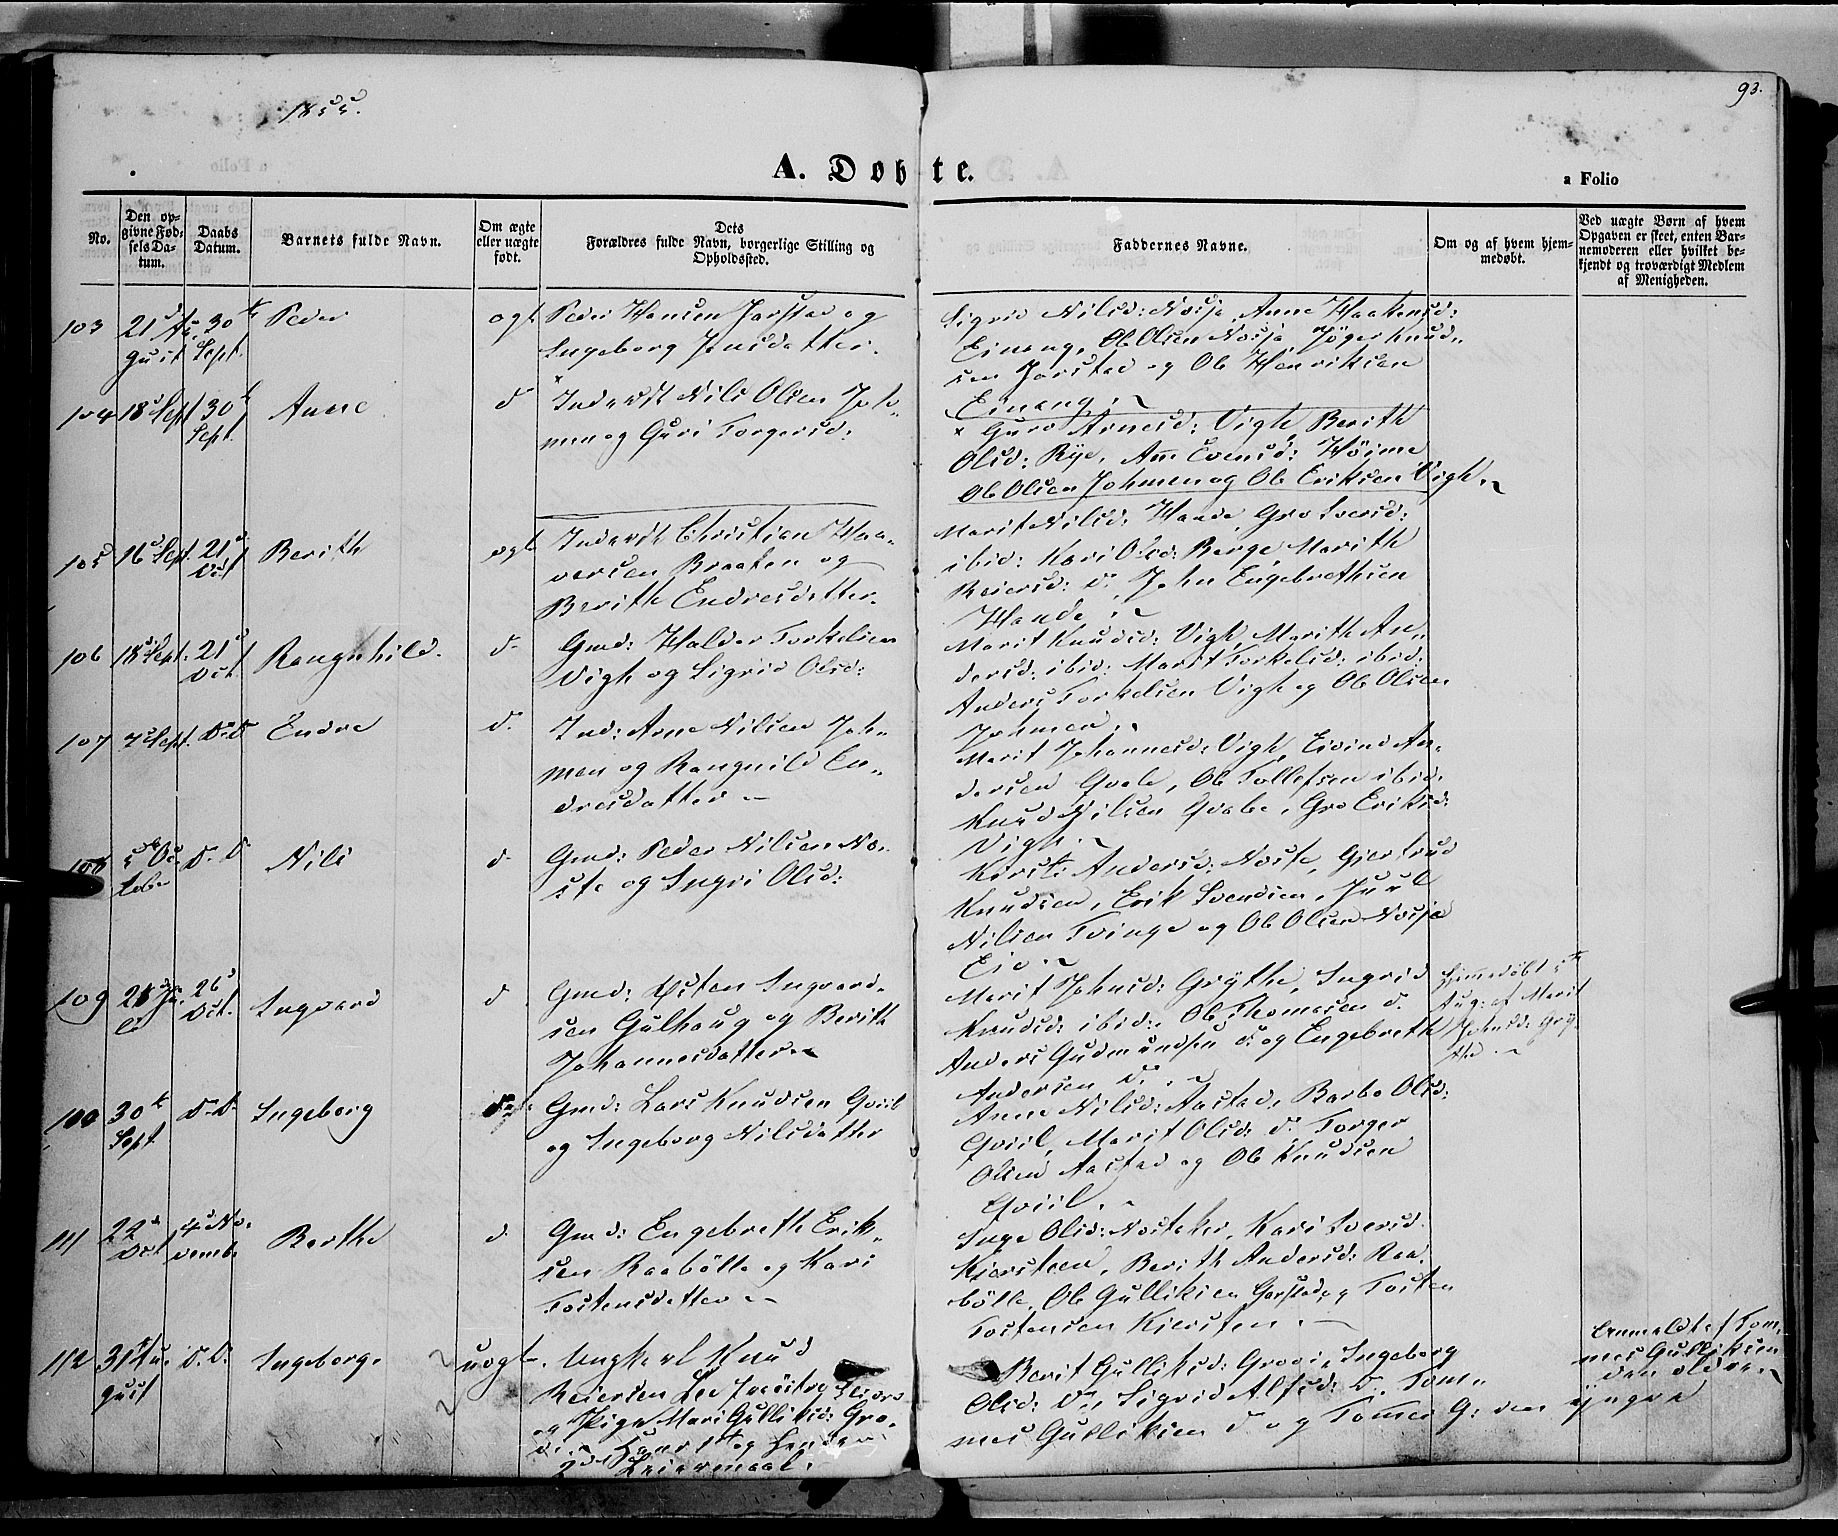 1855.
93.
A. Døbte.
a Folio
No.
Den op-
givne Fød-
sels Da-
tum.
Daabs
Datum.
Barnets fulde Navn.
Om ægte
eller uægte
født.
Dets
Forældres fulde Navn, borgerlige Stilling og
Opholdssted.
Faddernes Navne.
Om og af hvem hjem-
medøbt.
Ved uægte Børn af hvem
Opgaven er skeet, enten Bar-
nemoderen eller hvilket be-
kjendt og troværdigt Medlem
af Menigheden.
103
21 Au
gust
30
Sept.
Peder
ægt
Peder Hansen Jarstad og
Ingeborg Jensdatter.
Sigrid Nilsd: Nøsja, Anne Haakensd:
Einang, Ole Olsen Nøsja, Jøger Knud-
sen Jarstad og Ole Henriksen
Einang.
104
18 Sept
30
Sept.
Anne
d
Inderst Nils Olsen Joh-
men og Guri Torgersd:
× Guro Arnesd: Vigh, Berith
Olsd: Rye, Ane Evensd: Høime
Ole Olsen Johmen og Ole Eriksen Vigh.
105
16 Sept.
21
Oct
Berith
ægt
Inderst Christian Haa-
versen Braaten og
Berith Endresdatter.
Marit Nilsd: Hande, Gro Iversd:
ibid: Kari Olsd: Berge, Marith
Reiersd: do, John Engebrethsen
Hande.
106
18 Sept.
21
Oct.
Rangnhild.
d
Gmd: Haldor Torkelsen
Vigh og Sigrid Olsd:
Marit Knudsd: Vigh, Marith An-
dersd: ibid: Marit Torkelsd: ibid:
Anders Torkelsen Vigh og Ole Olsen
Johmen.
107
7 Sept.
D. D
Endre
d.
Ind: Arne Nilsen Joh-
men og Rangnild En-
dresdatter
Marit Johannesd: Vigh, Eivind An-
dersen Qvale, Ole Tollefsen ibid.
Knud Nilsen Qvale, Gro Eriksd:
Vigh.
108
5 Oc
tober
D. D
Nils
d.
Gmd: Peder Nilsen Nø-
ste og Ingri Olsd:
Kirsti Andersd: Nøste, Gjertrud
Knudsen, Erik Svendsen, Juul
Nilsen Tvinge og Ole Olsen Nøsja
Eie.
109
28 Ju
li
26
Oct.
Ingvard
d
Gmd: Østen Ingvard-
sen Gulhaug og Berith
Johannesdatter
Marit Johnsd: Grythe, Ingrid
Knudsd: ibid: Ole Thomesen d.
Anders Gudmundsen d. og Engebreth
Andersen D.
Hjemmedøbt 5te
Aug: af Marit
Johnsd: Gry-
the
110
30
Sept
D. D.
Ingeborg
Gmd: Lars Knudsen Qviil
og Ingeborg Nilsdatter
Anne Nilsd: Aastad, Barbo Olsd:
Qviil, Marit Olsd: d. Torger
Olsen Aastad og Ole Knudsen
Qviil.
111
22
Oct
4 No-
vemb.
Berthe
d
Gmd: Engebreth Erik-
sen Raabølle og Kari
Tostensdatter
Inge Olsd: Nøsteker, Kari Iversd.
Kjersteen, Berith Andersd: Raa-
bølle, Ole Gulliksen Garstad og Tosten
Tostensen Kjersten.
112
31 Au
gust
D. D.
Ingeborg
uægt.
Ungkarl Knud
Reiersen
og Pige Mari Gulliksd: Gro-
Leiermaal.
Berit Gulliksd: Groven, Ingeborg
Olsd: D., Sigrid Alfsd: D., Tom-
mes Gulliksen d. og Tomes G: den yngre
Anmeldt af Tom-
mes Gulliksen
den ældre